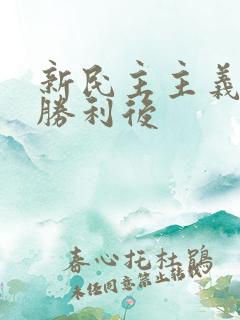 新民主主義
勝利後
春心托杜鵑
未经同意禁止转载